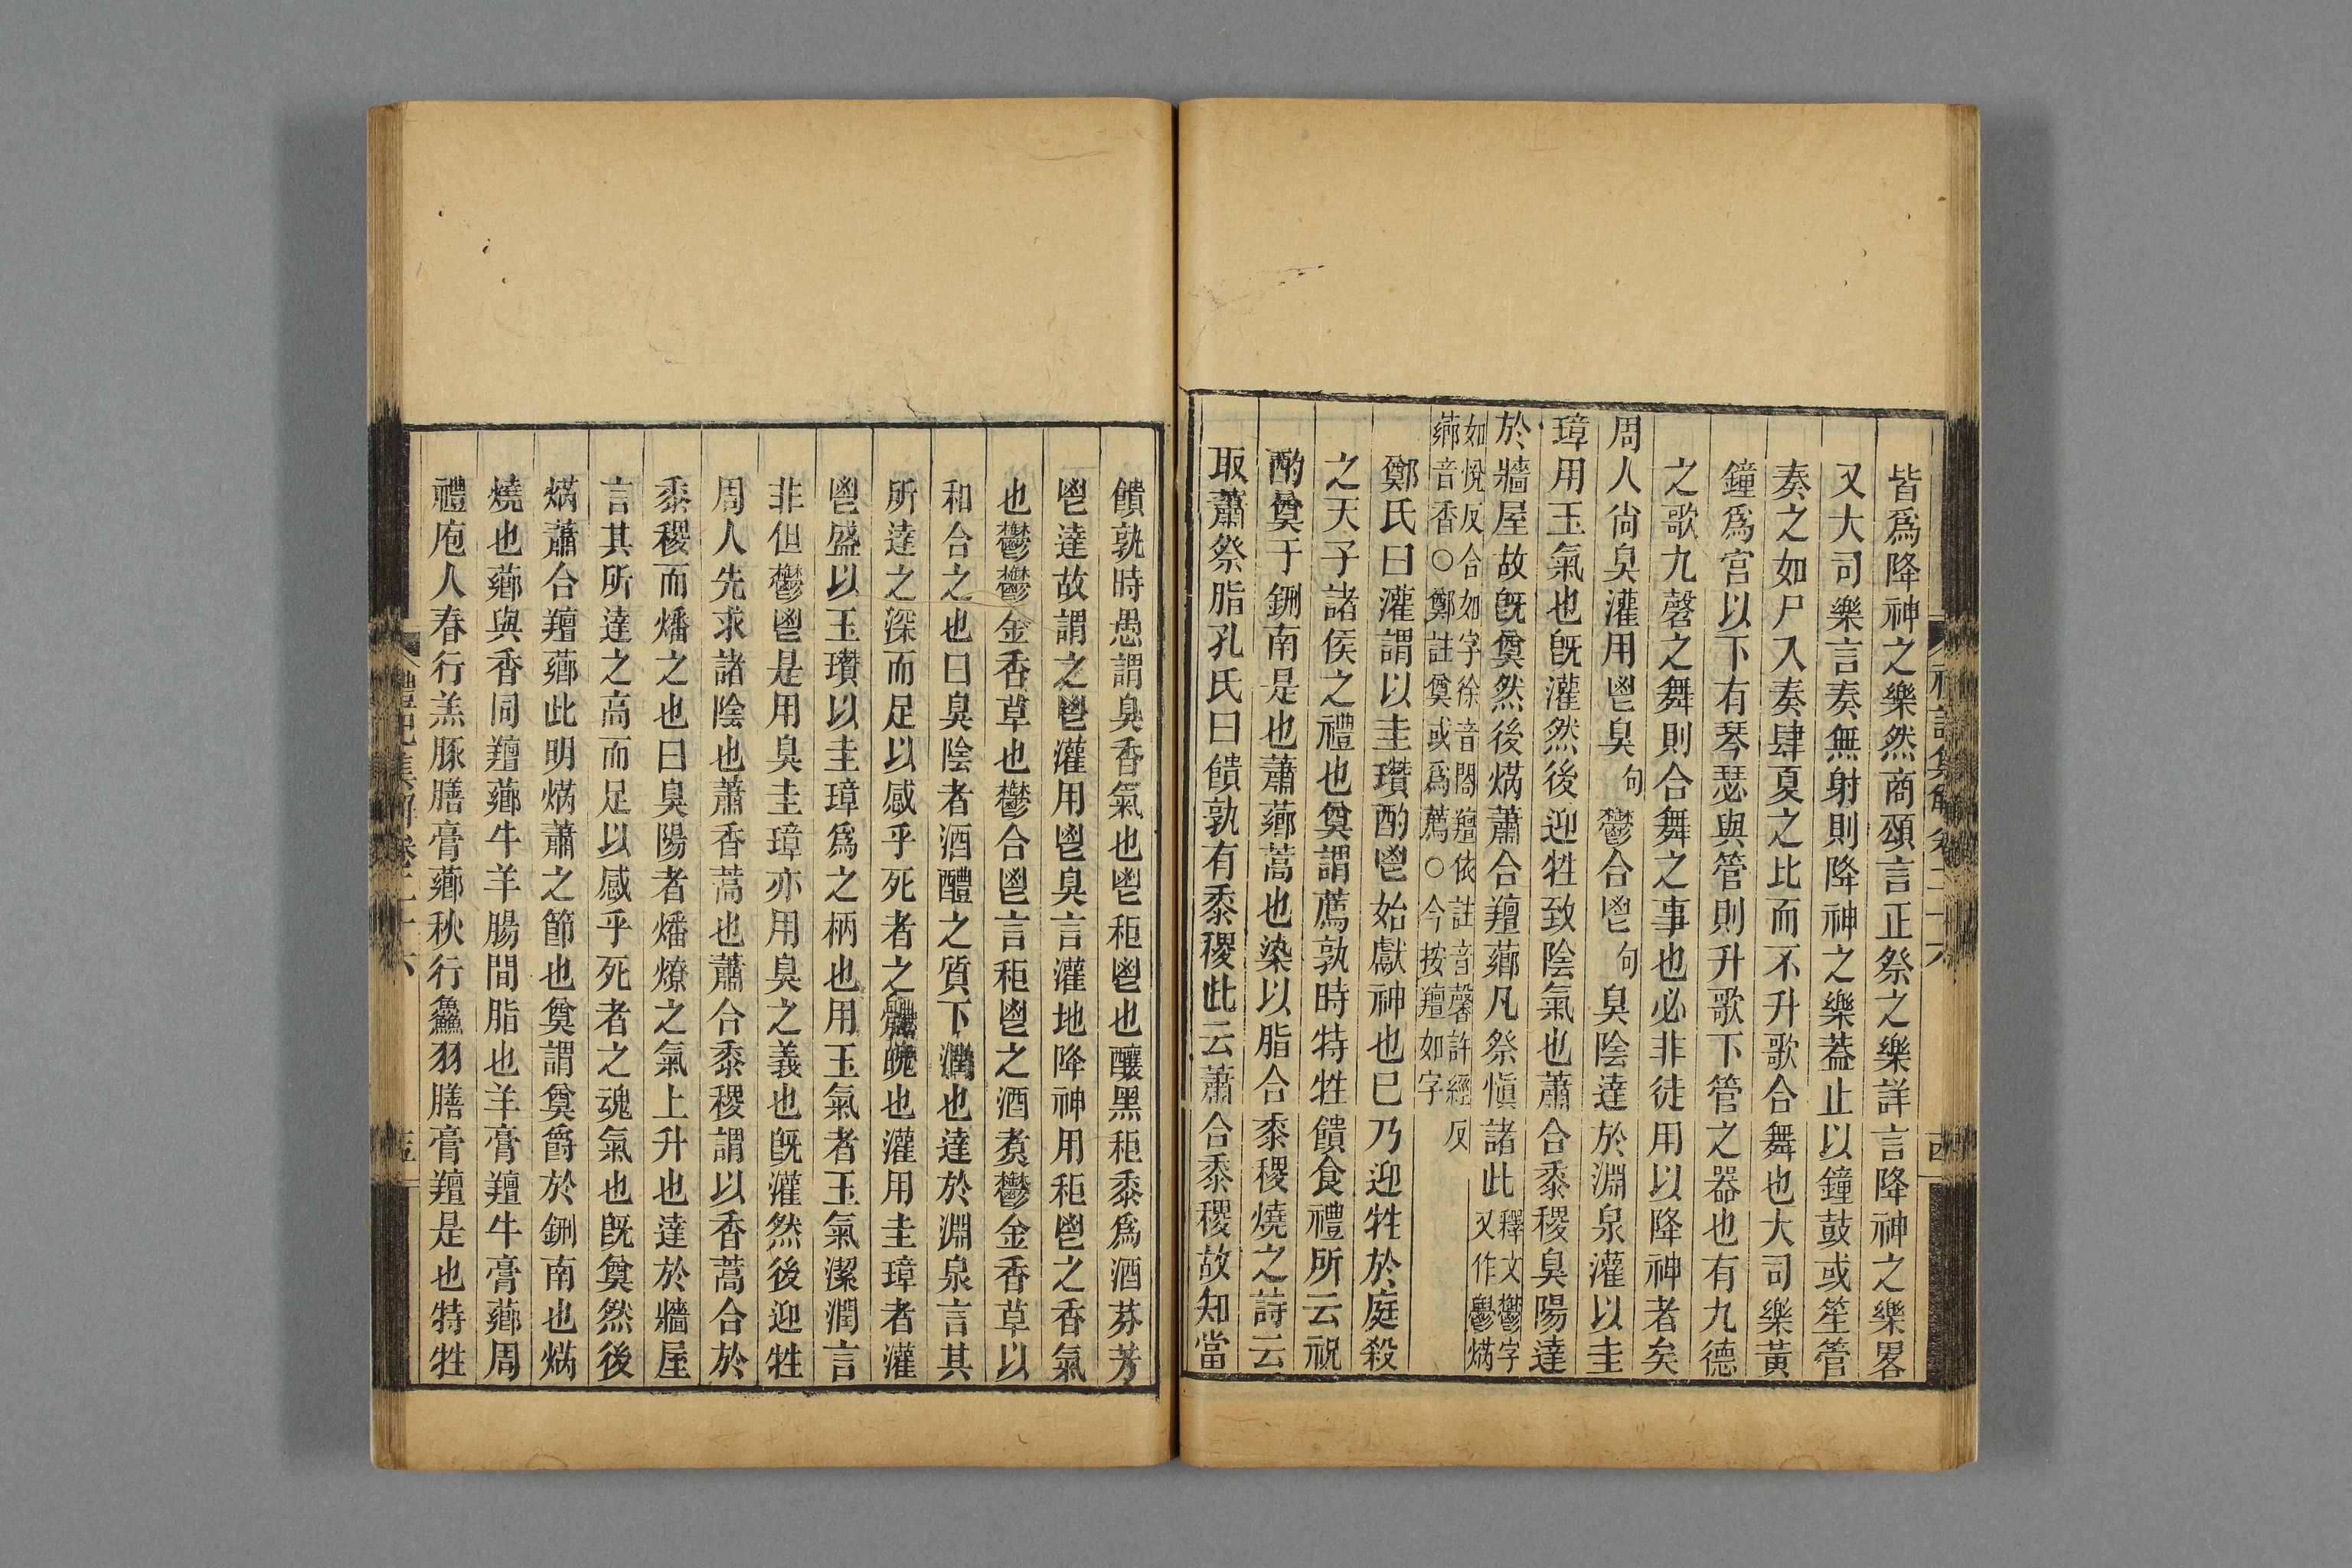 皆爲降神之樂然商頌言正祭之樂詳言降神之樂畧
又大司樂言奏無射則降神之樂葢止以鐘鼓或笙管
奏之如尸入奏肆夏之比而不升歌合舞也大司樂黃
鐘爲宮以下有琴瑟與管則升歌下管之器也有九德
之歌九磬之舞則合舞之事也必非徒用以降神者矣
周人尙臭灌用鬯臭句鬱合鬯句臭陰達於淵泉灌以圭
璋用玉氣也旣灌然後迎牲致陰氣也蕭合黍稷臭陽達
於牆屋故旣奠然後焫蕭合羶薌凡祭愼諸此釋文鬱字又作鬱焫
如悅反合如字徐音閤羶依註音馨許經反
薌音香○鄭註奠或爲薦○今按羶如字
鄭氏曰灌謂以圭瓚酌鬯始獻神也已乃迎牲於庭殺
之天子諸侯之禮也奠謂薦孰時特牲饋食禮所云祝
酌奠于鉶南是也蕭薌蒿也染以脂合黍稷燒之詩云
取蕭祭脂孔氏曰饋孰有黍稷此云蕭合黍稷故知當
禮記集解卷二十六
饋孰時愚謂臭香氣也鬯秬鬯也釀黑秬黍爲酒芬芳
鬯達故謂之鬯灌用鬯臭言灌地降神用秬鬯之香氣
也鬱鬱金香草也鬱合鬯言秬鬯之酒煑鬱金香草以
和合之也曰臭陰者酒醴之質下潤也達於淵泉言其
所達之深而足以感乎死者之體魄也灌用圭璋者灌
鬯盛以玉瓚以圭璋爲之柄也用玉氣者玉氣潔潤言
非但鬱鬯是用臭圭璋亦用臭之義也旣灌然後迎牲
周人先求諸陰也蕭香蒿也蕭合黍稷謂以香蒿合於
黍稷而燔之也曰臭陽者燔燎之氣上升也達於牆屋
言其所達之高而足以感乎死者之魂氣也旣奠然後
焫蕭合羶薌此明焫蕭之節也奠謂奠爵於鉶南也焫
燒也薌與香同羶薌牛羊腸間脂也羊膏羶牛膏薌周
禮庖人春行羔豚膳膏薌秋行鱻羽膳膏羶是也特牲
禮記集解卷二十六